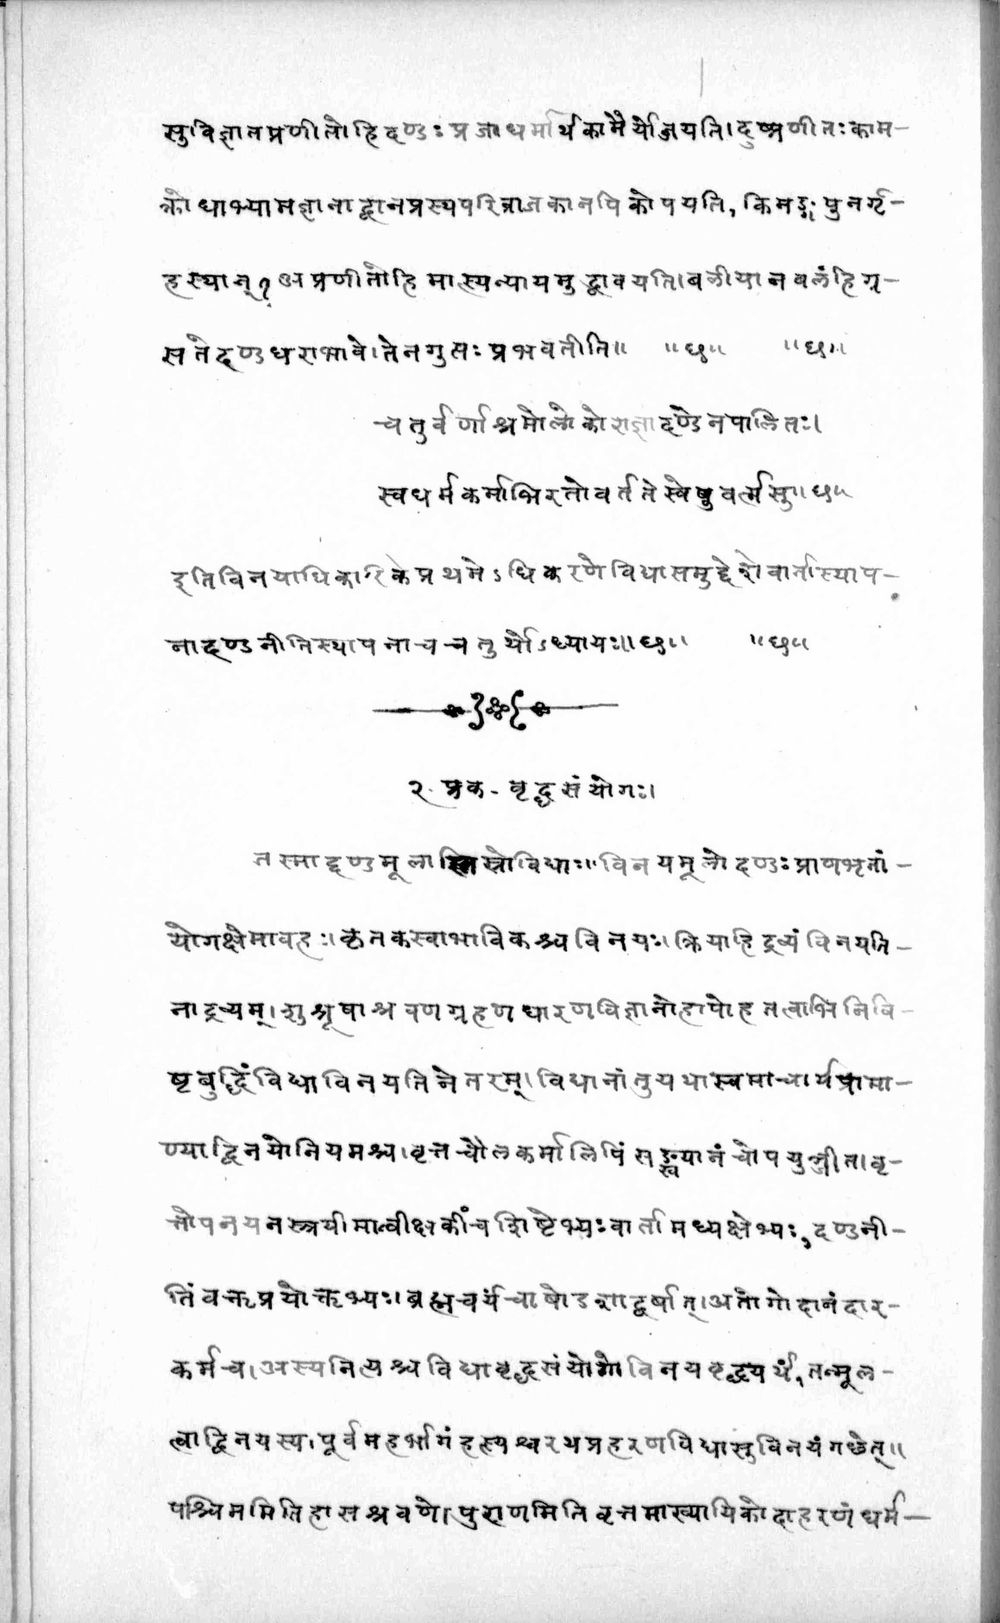 सुविज्ञातप्रणीतोहिदण्डःप्रजाधर्मार्थकामैर्योजयति।दुष्प्रणीतःकाम-
क्रोधाभ्यामज्ञानाद्वानप्रस्थपरिव्राजकानपिकोपयति, किमङ्गःपुनर्गृ-
हस्थान्?अप्रणीतोहिमात्स्यन्यायमुद्भावयति।बलीयानबलंहिग्र-
सतेदण्डधराभावे।तेनगुप्तःप्रभवतीति॥ ॥छ॥ ॥छ॥
चतुर्वर्णाश्रमोलोकोराज्ञादण्डेनपालितः।
स्वधर्मकर्माभिरतोवर्ततेस्वेषुवर्त्मसु॥छ॥
इतिविनयाधिकारिकेप्रथमेऽधिकरणेविद्यासमुद्देशेवार्तास्थाप-
नादण्डनीतिस्थापनाचचतुर्थोऽध्यायः॥छ॥ ॥छ॥
२. प्रक- वृद्धसंयोगः।
तस्माद्दण्डमूलास्तिस्त्रोविद्याः॥विनयमूलोदण्डःप्राणभृतां-
योगक्षेमावहः।कृतकस्वाभाविकश्चविनयः।क्रियाहिद्रव्यंविनयति-
नाद्रव्यम्।शुश्रूषाश्रवणग्रहणधारणविज्ञानोहापोहतत्वाभिनिवि-
ष्टबुद्धिंविद्याविनयतिनेतरम्।विद्यानांतुयथास्वमाचार्यप्रामा-
ण्याद्विनयोनियमश्च।वृत्तचौलकर्मालिपिंसङ्ख्यानंचोपयुञ्जीत।वृ-
त्तोपनयनस्त्रयीमान्वीक्षकींचशिष्टेभ्यःवार्तामध्यक्षेभ्यः,दण्डनी-
तिंवक्तृप्रयोक्तृभ्यः।ब्रह्मचर्यंचाषोडशाद्वर्षात्।अतोगोदानंदार-
कर्मच।अस्यनित्यश्चविद्यावृद्धसंयोगोविनयवृद्ध्यर्थं,तन्मूल-
त्वाद्विनयस्य।पूर्वमहर्भागंहस्त्यश्वरथप्रहरणविद्यासुविनयंगछेत्॥
पश्चिममितिहासश्रवणे।पुराणमितिवृत्तमाख्यायिकोदाहरणंधर्म-